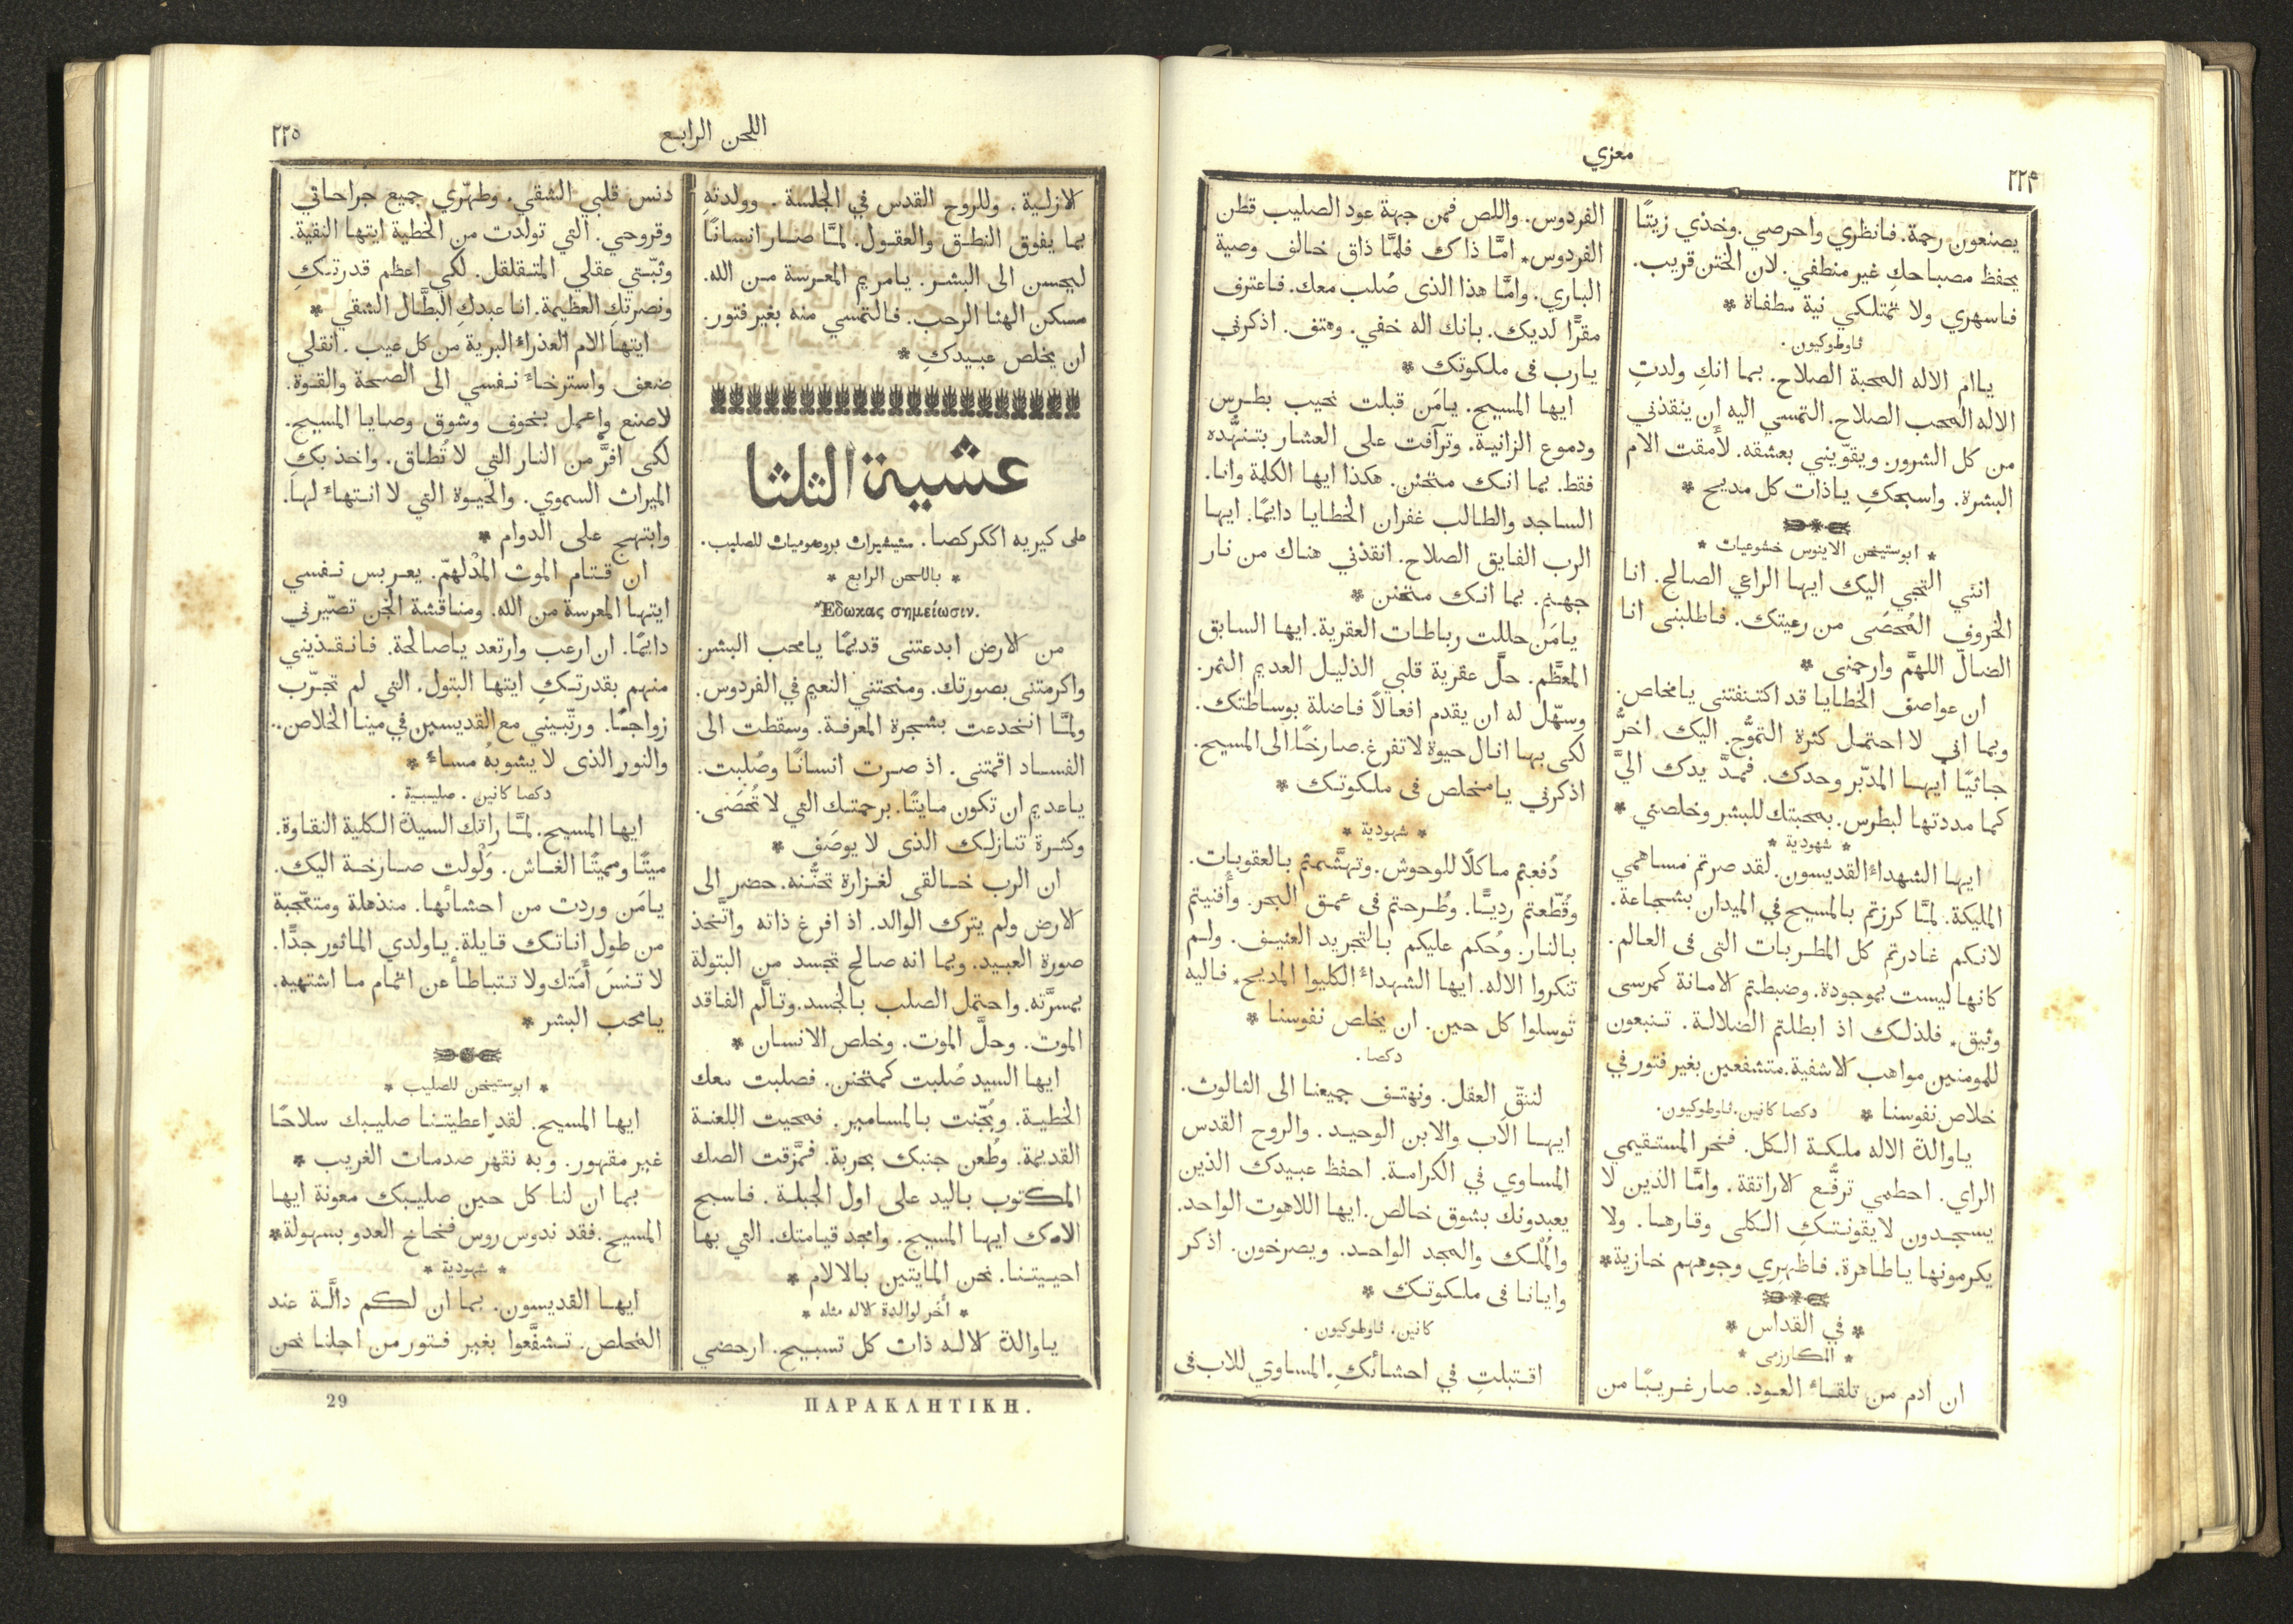 ٢٢٤
معزي
يصنعون رحمة. فانظري واحرصي. وخذي زيتًا
يحفظ مصباحكِ غير منطفي. لان الختن قريب.
فاسهري ولا تمتلكي نية مطفاة *
ثاوطوكيون.
ياام الاله المحبة الصلاح. بما انكِ ولدتِ
الاله المحب الصلاح. التمسي اليه ان ينقذني
من كل الشرور. ويقوّيني بعشقه. لأمقت الام
البشرة. واسبحكِ ياذات كل مديح *
* ابوستيخن الاينوس خشوعيات *
انني التجي اليك ايها الراعي الصالح. انا
الخروف المُحصَى من رعيتك. فاطلبنى انا
الضالّ اللهمَّ وارحمنى *
ان عواصف الخطايا قد اكتنفتنى يامخلص.
وبما اني لا احتمل كثرة التموُّج. اليك اخرُّ
جاثيًا ايها المدّبر وحدك. فمدَّ يدك اليَّ
كما مددتها لبطرس. بمحبتك للبشر وخلصني *
* شهودية *
ايها الشهداءُ القديسون. لقد صرتم مساهمي
المليكة. لمَّا كرزتم بالمسيح في الميدان بشجاعة.
لانكم غادرتم كل المطربات التى فى العالم.
كانها ليست بموجودة. وضبطتم الامانة كمرسى
وثيق. فلذلك اذ ابطلتم الضلالة. تنبعون
للمومنين مواهب الاشفية. متشفعين بغير فتور في
خلاص نفوسنا * دكصا كانين. ثاوطوكيون.
ياوالدة الاله ملكة الكل. فخر المستقيمي
الراي. احطمي ترفُّع الاراتقة. وامَّا الذين لا
يسجدون لايقونتكِ الكلى وقارها. ولا
يكرمونها ياطاهرة. فاظهري وجوههم خازية *
* في القداس *
* المكارزمى *
ان ادم من تلقاءُ العود. صار غريبًا من
الفردوس. واللص فمن جهة عود الصليب قطن
الفردوس. امَّا ذاك فلمَّا ذاق خالف وصية
الباري. وامَّا هذا الذى صُلب معك. فاعترف
مقرًّا لديك. بانك اله خفي. وهتف. اذكرني
يارب فى ملكوتك *
ايها المسيح. يامَن قبلت نحيب بطرس
ودموع الزانية. وترآفت على العشار بتنهُّده
فقط. بما انك متحنن. هكذا ايها الكلمة وانا.
الساجد والطالب غفران الخطايا دايمًا. ايها
الرب الفايق الصلاح. انقذني هناك من نار
جهنم. بما انك متحنن *
يامَن حللت رباطات العقرية. ايها السابق
المعظَّم. حلَّ عقرية قلبي الذليل العديم الثمر.
وسهّل له ان يقدم افعالاً فاضلة بوساطتك.
لكى بها انال حيوة لا تفرغ. صارخًا الى المسيح.
اذكرني يامخلص فى ملكوتك *
* شهودية *
دُفعتم ماكلًا للوحوش. وتهشَّمتم بالعقوبات.
وقُطّعتم رديًّا. وطُرحتم فى عمق البحر. وأُفنيتم
بالنار. وحُكم عليكم بالتجريد العنيف. ولم
تنكروا الاله. ايها الشهداءُ الكليوا المديح. فاليه
توسلوا كل حين. ان يخلص نفوسنا *
دكصا.
لننقّ العقل. ونهتف جميعنا الى الثالوث.
ايها الآب والابن الوحيد. والروح القدس
المساوي في الكرامة. احفظ عبيدك الذين
يعبدونك بشوق خالص. ايها اللاهوت الواحد.
والمُلك والمجد الواحد. ويصرخون. اذكر
وايانا فى ملكوتك *
كانين. ثاوطوكيون.
اقتبلتِ في احشائكِ. المساوي للاب فى
اللحن الرابع
٢٢٥
الازلية. وللروح القدس في الجلسة. وولدتهِ
بما يفوق النطق والعقول. لمَّا صار انسانًا
ليحسن الى البشر. يامريم المعرسة من الله.
مسكن الهنا الرحب. فالتمسي منه بغير فتور.
ان يخلص عبيدكِ *
عشية الثلثا
على كيريه اككركصا. ستيشيرات بروصوميات للصليب.
* باللحن الرابع *
Ἔδωκας σημείωσιν.
من الارض ابدعتنى قديمًا يامحب البشر.
واكرمتنى بصورتك. ومنحتني النعيم في الفردوس.
ولمَّا انخدعت بشجرة المعرفة. وسقطت الى
الفساد اقمتنى. اذ صرت انسانًا وصُلبت.
ياعديم ان تكون مايتًا. برحمتك التي لا تُحصَى.
وكثرة تنازلك الذى لا يوصَف *
ان الرب خالقى لغزارة تحنُّنه. حضر الى
الارض ولم يترك الوالد. اذ افرغ ذاته واتَّخذ
صورة العبيد. وبما انه صالح تجسد من البتولة
بمسرَّته. واحتمل الصلب بالجسد. وتألَّم الفاقد
الموت. وحلَّ الموت. وخلص الانسان *
ايها السيد صُلبت كمتحنن. فصلبت معك
الخطية. وبُخّنت بالمسامير. فمحيت اللعنة
القديمة. وطُعن جنبك بحربة. فمزَّقت الصك
المكتوب باليد على اول الجبلة. فاسبح
الامك ايها المسيح. وامجد قيامتك. التي بها
احييتنا. نحن المايتين بالالام *
* أخر لوالدة الاله مثله *
ياوالدة الاله ذات كل تسبيح. ارحضي
دنس قلبي الشقي. وطهّري جميع جراحاتي
وقروحي. التي تولدت من الخطية ايتها النقية.
وثبّتي عقلي المتقلقل. لكي اعظم قدرتكِ
ونصرتكِ العظيمة. انا عبدكِ البطَّال الشقي *
ايتها الام العذراءُ البرية من كل عيب. انقلي
ضعف واسترخاءَ نفسي الى الصحة والقوة.
لاصنع واعمل بخوف وشوق وصايا المسيح.
لكى افرَّ من النار التي لا تُطاق. واخذ بكِ
الميراث السموي. والحيوة التي لا انتهاءَ لها.
وابتهج على الدوام *
ان قتام الموت المُدْلهمّ. يعربس نفسي
ايتها المعرسة من الله. ومناقشة الجن تصيّرني
دايمًا. ان ارعب وارتعد ياصالحة. فانقذيني
منهم بقدرتكِ ايتها البتول. التي لم تجرّب
زواجًا. ورتّبيني مع القديسين في مينا الخلاص.
والنور الذى لا يشوبهُ مساءُ *
دكصا كانين. صليبية.
ايها المسيح. لمَّا راتك السيدة الكلية النقاوة.
ميتًا ومميتًا الغاش. وَلْولت صارخة اليك.
يامَن وردت من احشائها. منذهلة ومتعجّبة
من طول اناتك قايلة. ياولدي الماثور جدًّا.
لا تنسَ أَمَتك ولا تتباطأ عن اتمام ما اشتهيه.
يامحب البشر *
* ابوستيخن للصليب *
ايها المسيح. لقد اعطيتنا صليبك سلاحًا
غير مقهور. وبه نقهر صدمات الغريب *
بما ان لنا كل حين صليبك معونة ايها
المسيح. فقد ندوس روس فخاخ العدو بسهولة *
* شهودية *
ايها القديسون. بما ان لكم دالَّة عند
المخلص. تشفَّعوا بغير فتور من اجلنا نحن
ΠΑΡΑΚΛΗΤΙΚΗ.
29